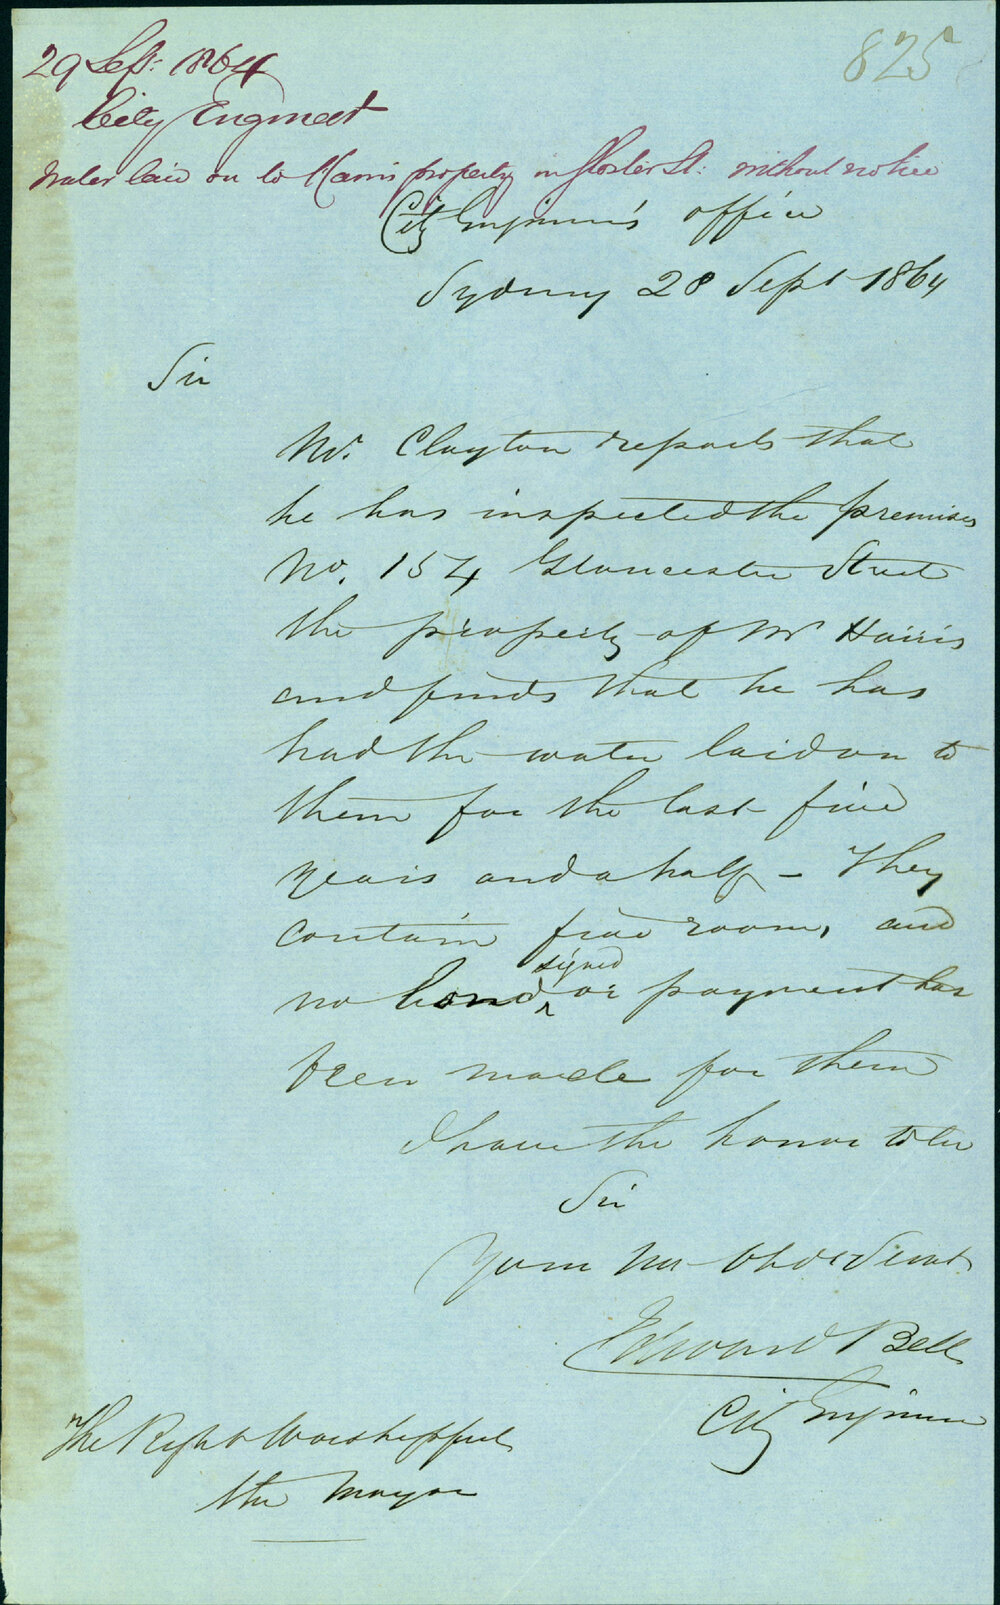 825
29 Sep: 1864
City Engineer
Water laid on to Harris property in Gloster St: without notice
City Engineer's office
Sydney 28 Sept 1864
Sir
Mr. Clayton reports that
he has inspected the premises
No. 154 Gloucester Street
the property of Mr Harris
and finds that he has
had the water laid on to
them for the last five
years and a half – They
contain five rooms, and
signed
no bond ^ or payment has
been made for them
I have the honor to be
Sir
Your Mo Obdt Servt
Edward Bell
City Engineer
The Right Worshipful
the Mayor